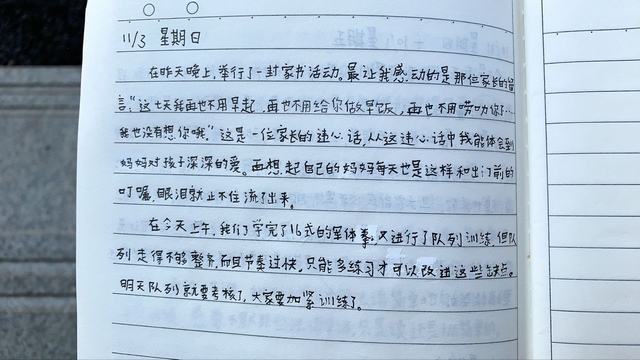 11/3 星期日
在昨天晚上,举行了一封家书活动。最让我感动的是那位家长的留
言,"这七天我再也不用早起,再也不用给你做早饭,再也不用唠叨你了…
我也没有想你哦。"这是一位家长的违心话,从这违心话中我能体会到
妈妈对孩子深深的爱。再想起自己的妈妈每天也是这样和出门前的
叮嘱,眼泪就止不住流了出来。
在今天上午,我们学完了16式的军体拳,又进行了队列训练,但队
列走得不够整齐,而且节奏过快。只能多练习才可以改进这些缺点。
明天队列就要考核了,大家要加紧训练了。